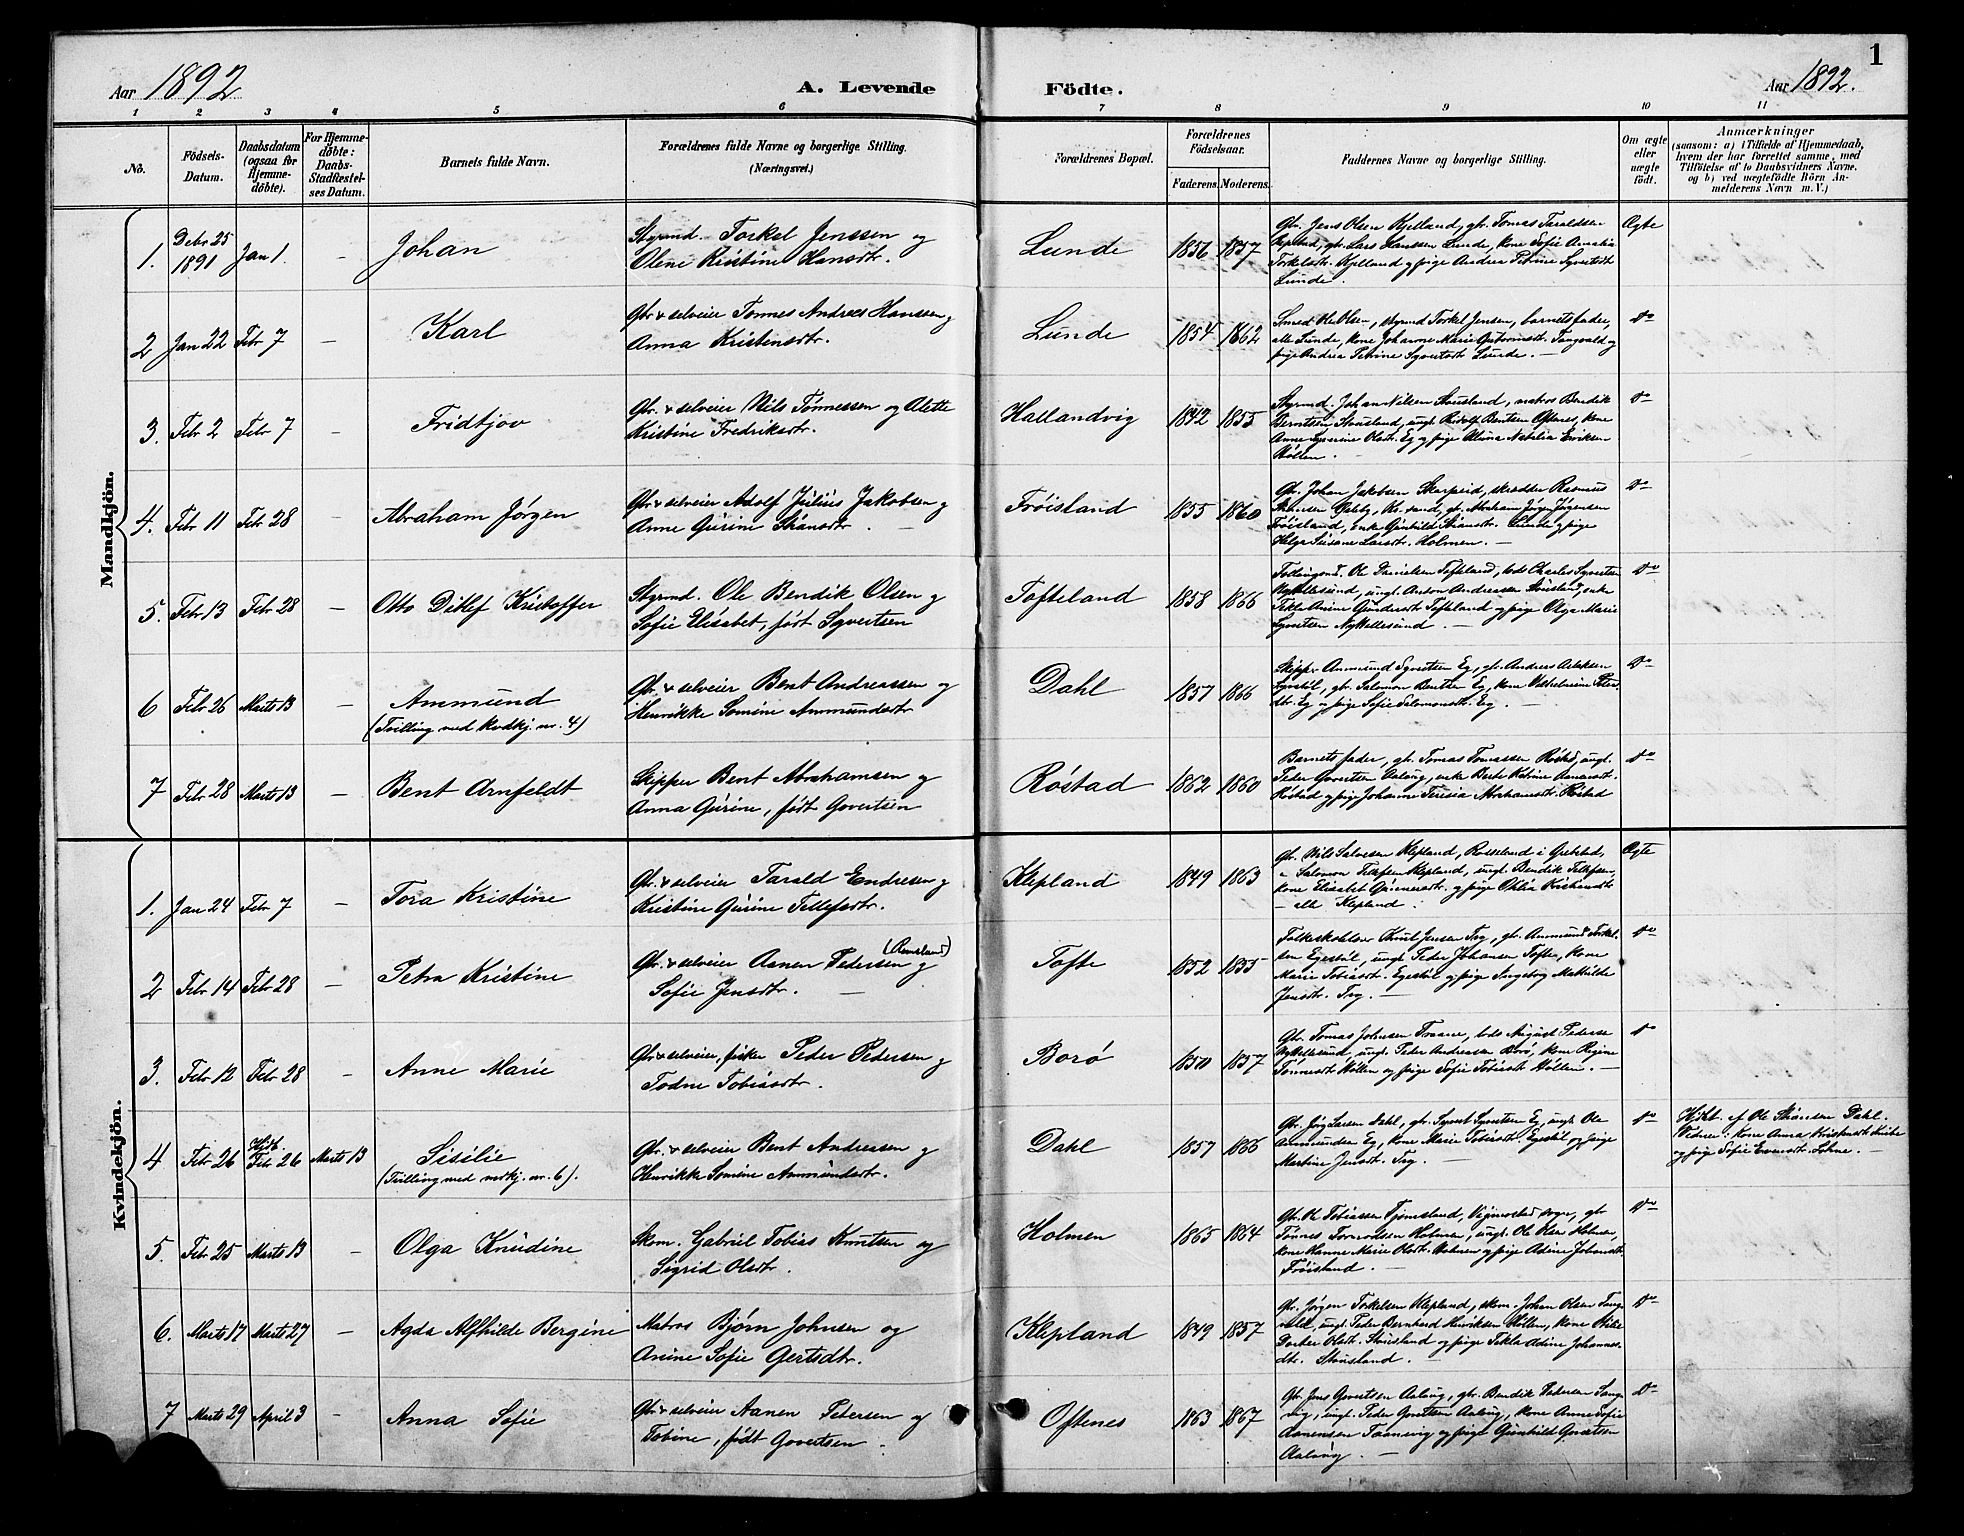 1
Aar 1892
A. Levende
Födte.
Aar 1892.
1 2 3 4 5 6 7 8 9 10 11
No.
Födsels-Datum.
Daabsdatum (ogsaa for Hjemme-döbte).
For Hjemme-döbte: Daabs-Stadfæstel-ses Datum.
Barnets fulde Navn.
Forældrenes fulde Navne og borgerlige Stilling.
(Næringsvei.)
Forældrenes Bopæl.
Forældrenes Födselsaar.
Faderens. Moderens.
Faddernes Navne og borgerlige Stilling.
Om ægte eller uægte födt.
Anmærkninger
(saasom: a) i Tilfælde af Hjemmedaab,
hvem der har forrettet samme, med
Tilföielse af to Daabsvidners Navne.
og b) ved uægtefödte Börn An-
melderens Navn m. V.)
Mandkjön.
1. Debr 25 1891 Jan 1. – Johan
Styrmd. Torkel Jenssen og
Olene Kristine Hansdtr.
Lunde 1856 1857
Gbr. Jens Olsen Kjelland, gbr. Tomas Taraldsen
gbr. Lars Hanssen Lunde, kone Sofie Amalia
Torkelsdtr. Kjelland og pige Andrea Petrine Syvertsdtr
Lunde.
Ægte
2 Jan 22 Febr 7 – Karl
Gbr & selveier Tønnes Andreas Hanssen og
Anna Kristensdtr.
Lunde 1854 1862
Smed Ole Olsen, styrmd Torkel Jensen, barnets fader,
alle Lunde, kone Johanne Marie Tangvald og
pige Andrea Petrine Syvertsdtr Lunde. –
do
3. Febr 2 Febr 7 – Fridtjov
Gbr. & selveier Nils Tønnessen og Alette
Kristine Fredriksdtr.
Hallandvig 1842 1855
Styrmd. Johan Nilsen Stousland, matros Bendik
Berntsen Stousland, ungk. Rudolf Bentsen Oftenes, kone
Anne Olsdtr. Eg og pige Alvina Natalia Eriksen
Høllen.
do
4. Febr 11 Febr 28 – Abraham Jørgen
Gbr & selveier Adolf Julius Jakobsen og
Anne Gurine Stiansdtr. –
Frøisland 1855 1860
Gbr. Johan Jakobsen Skarpeid, skrædder Rasmus
Kr.sand, gbr. Abraham Jørgen Jørgensen
Frøisland, enke Gunhild Stiansdtr. Lunde og pige
Helga Susane Larsdtr. Holmen. –
do
5. Febr 13 Febr 28 – Otto Ditlef Kristoffer
Styrmd. Ole Bendik Olsen og
Sofie Elisabet, født Syvertsen
Tofteland 1858 1866
Ole Danielsen Tofteland, lods Charles Syvertsen
Nykellesund, ungk. Anton Andreassen Stousland, enke
Tekla Anine Gundersdtr Tofteland og pige Olga Marie
Syvertsen Nykellesund. –
do
6 Febr 26 Marts 13 – Ammund
(Tvilling med kvdkj. nr. 4)
Gbr. & selveier Bent Andreassen og
Henrikke Somine Ammundsdtr
Dahl 1857 1866
Skipper Ammund Syvertsen Eg, gbr. Andreas Aslaksen
gbr. Salomon Bentsen Eg, kone Vilhelmine Peter-
dtr. Eg og pige Sofie Salomonsdtr. Eg.
do
7 Febr 28 Marts 13 – Bent Arnfeldt
Skipper Bent Abrahamsen og
Anna Gurine, født Govertsen
Røstad 1862 1860
Barnets fader, gbr. Tomas Tomassen Røstad, ungk.
Peder Govertsen Aalvig, enke Berte Aanensdtr.
Røstad og pige Johanne Teresia Abrahamsdtr. Røstad
do
Kvindekjön.
1. Jan 24 Febr 7 – Tora Kristine
Gbr. & selveier Tarald Endresen og
Kristine Gurine Tellefsdtr.
Klepland 1849 1863
Gbr. Nils Salvesen Klepland, Rosseland i Greipstad,
Salomon Tellefsen Klepland, ungk. Bendik Tellefsen,
kone Elisabet Gunnersdtr. og pige Otilia Kristiansdtr
– alle Klepland.
Ægte
2 Febr 14 Febr 28 – Petra Kristine
Gbr. & selveier Aanen Pedersen (Aunesland) og
Sofie Jensdtr. –
Tofte 1852 1855
Folkeskolelærer Knut Jensen Try, gbr. Ammund Torkel-
sen Egestøl, ungk. Peder Johansen Tofte, kone
Marie Tobiasdtr. Egestøl og pige Ingeborg Mathilde
Jensdtr. Try. –
do
3. Febr 12 Febr 28 – Anne Marie
Gbr. & selveier, fisker Peder Pedersen og
Todne Tobiasdtr.
Borø 1850 1857
Gbr. Tomas Johnsen Traane, lods August Pederse
Nykellesund, ungk. Peder Andreassen Borø, kone Regine
Tønnesdtr Høllen og pige Sofie Tobiasdtr Høllen. –
do
4 Febr 26 Hjdt. Febr 26 Marts 13 Sisilie
(Tvilling med mdkj. nr. 6).
Gbr. & selveier Bent Andreasen og
Henrikke Somine Ammundsdtr.
Dahl 1857 1866
Gbr. Jørg Larsen Dahl, gbr. Syvert Syvertsen Eg, ungk. Ole
Ammundsen Eg, kone Marie Tobiasdtr. Egestøl og pige
Martine Jensdtr. Try.
do
Hjdbt. af Ole Stiansen Dahl.
Vidner: Kone Anna Kristensdtr
og pige Sofie Evensdtr. Lohne. –
5. Febr 25 Marts 13 – Olga Knudine
Skom. Gabriel Tobias Knutsen og
Sigrid Olsdtr.
Holmen 1865 1864
Gbr. Ole Tobiassen Tjomsland, Vigmostad sogn, gbr
Tønnes Tormodsen Holmen, ungk. Ole Olsen Holmen,
kone Hanne Marie Olsdtr. Holmen og pige Adine Johnsdtr
Frøisland. –
do
6. Marts 17 Marts 27 – Agda Alfhilde Bergine
Matros Bjørn Johnsen og
Anine Sofie Gertsdtr.
Klepland 1849 1857
Gbr. Jørgen Torkelsen Klepland, skom. Johan Olsen Tang-
vald, ungk. Peder Bernhard Henriksen Høllen, kone
Olsdtr. Stousland og pige Tekla Adine Johannes-
dtr. Stousland. –
do
7 Marts 29 April 3 – Anna Sofie
Gbr. & selveier Aanen Petersen og
Tobine, født Govertsen.
Oftenes 1863 1867
Gbr. Jens Govertsen Aalvig, gbr. Bendik Pedersen Lang-
vig, ungk. Peder Govertsen Aalvig, kone Anne Sofie
Aanensen og pige Gunhild Govertsen
Aalvig. –
do